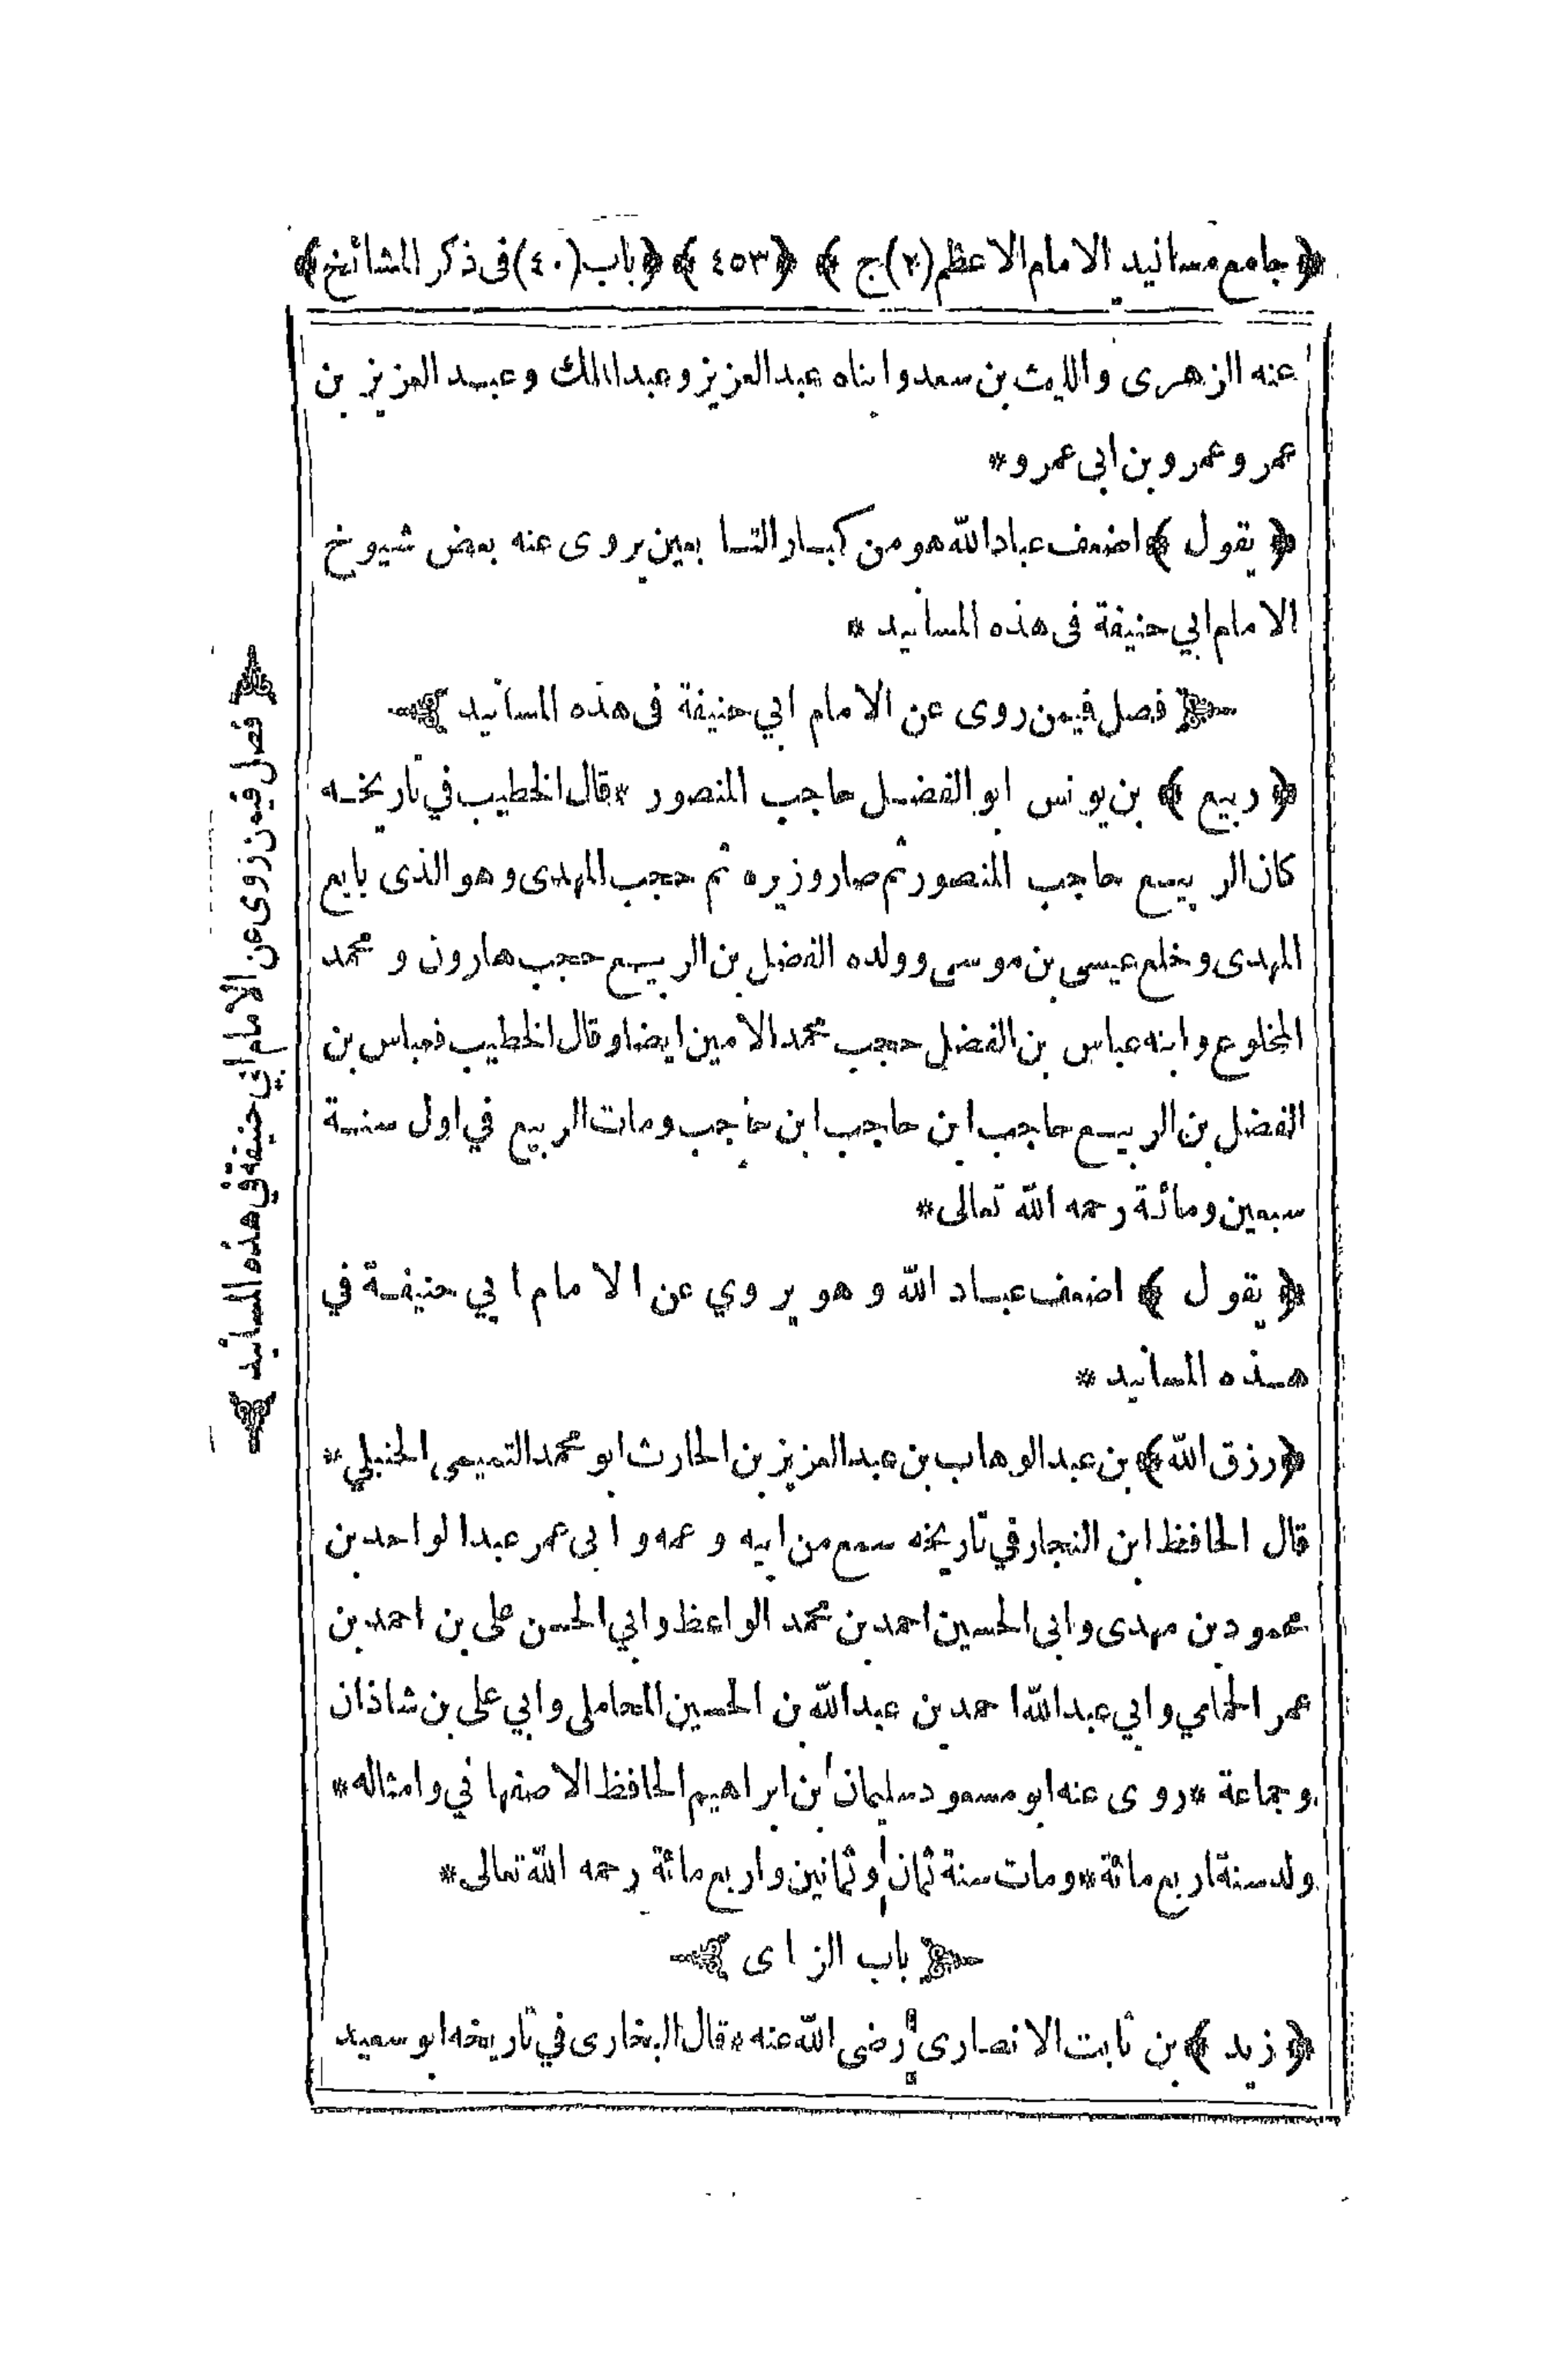 ﴿جامع مسانيد الامام الاعظم(٢)ج ﴾ ﴿ ٤٥٣ ﴾ ﴿باب(٤٠)فى ذكر المشائخ﴾
عنه الزهرى والليث بن سعد وابناه عبدالعزيز وعبدالملك وعبد العزيز بن
عمر وعمرو بن ابى عمرو*
﴿ يقول ﴾ اضعف عباد الله هو من كبار التابعين يروى عنه بعض شيوخ
الامام ابي حنيفة فى هذه المسانيد *
فصل فيمن روى عن الامام ابي حنيفة فى هذه المسانيد
﴿ ربيع ﴾ بن يونس ابو الفضل حاجب المنصور *قال الخطيب في تاريخه
كان الربيع حاجب المنصور ثم صار وزيره ثم حجب المهدى وهو الذى بايع
المهدى وخلع عيسى بن موسى وولده الفضل بن الربيع حجب هارون و محمد
المخلوع وابنه عباس بن الفضل حجب محمد الامين ايضا وقال الخطيب فعباس بن
الفضل بن الربيع حاجب ابن حاجب ابن حاجب ومات الربيع في اول سنة
سبعين ومائة رحمه الله تعالى*
﴿ يقول ﴾ اضعف عباد الله وهو يروي عن الامام ابي حنيفة في
هذه المسانيد *
﴿رزق الله﴾ بن عبد الوهاب بن عبد العزيز بن الحارث ابو محمد التميمى الحنبلي*
قال الحافظ ابن النجار في تاريخه سمع من ابيه و عمه و ابى عمر عبد الواحد بن
محمود بن مهدى وابى الحسين احمد بن محمد الواعظ وابي الحسن على بن احمد بن
عمر الحمامي وابي عبدالله احمد بن عبدالله بن الحسين المحاملى وابي على بن شاذان
وجماعة *روى عنه ابو مسعود سليمان بن ابراهيم الحافظ الاصفهاني وامثاله*
ولد سنة اربع مائة *ومات سنة ثمان وثمانين واربع مائة رحمه الله تعالى*
باب الزاى
﴿ زيد ﴾ بن ثابت الانصارى رضى الله عنه *قال البخارى في تاريخه ابو سعيد
فصل فيمن روى عن الامام ابي حنيفة في هذه المسانيد